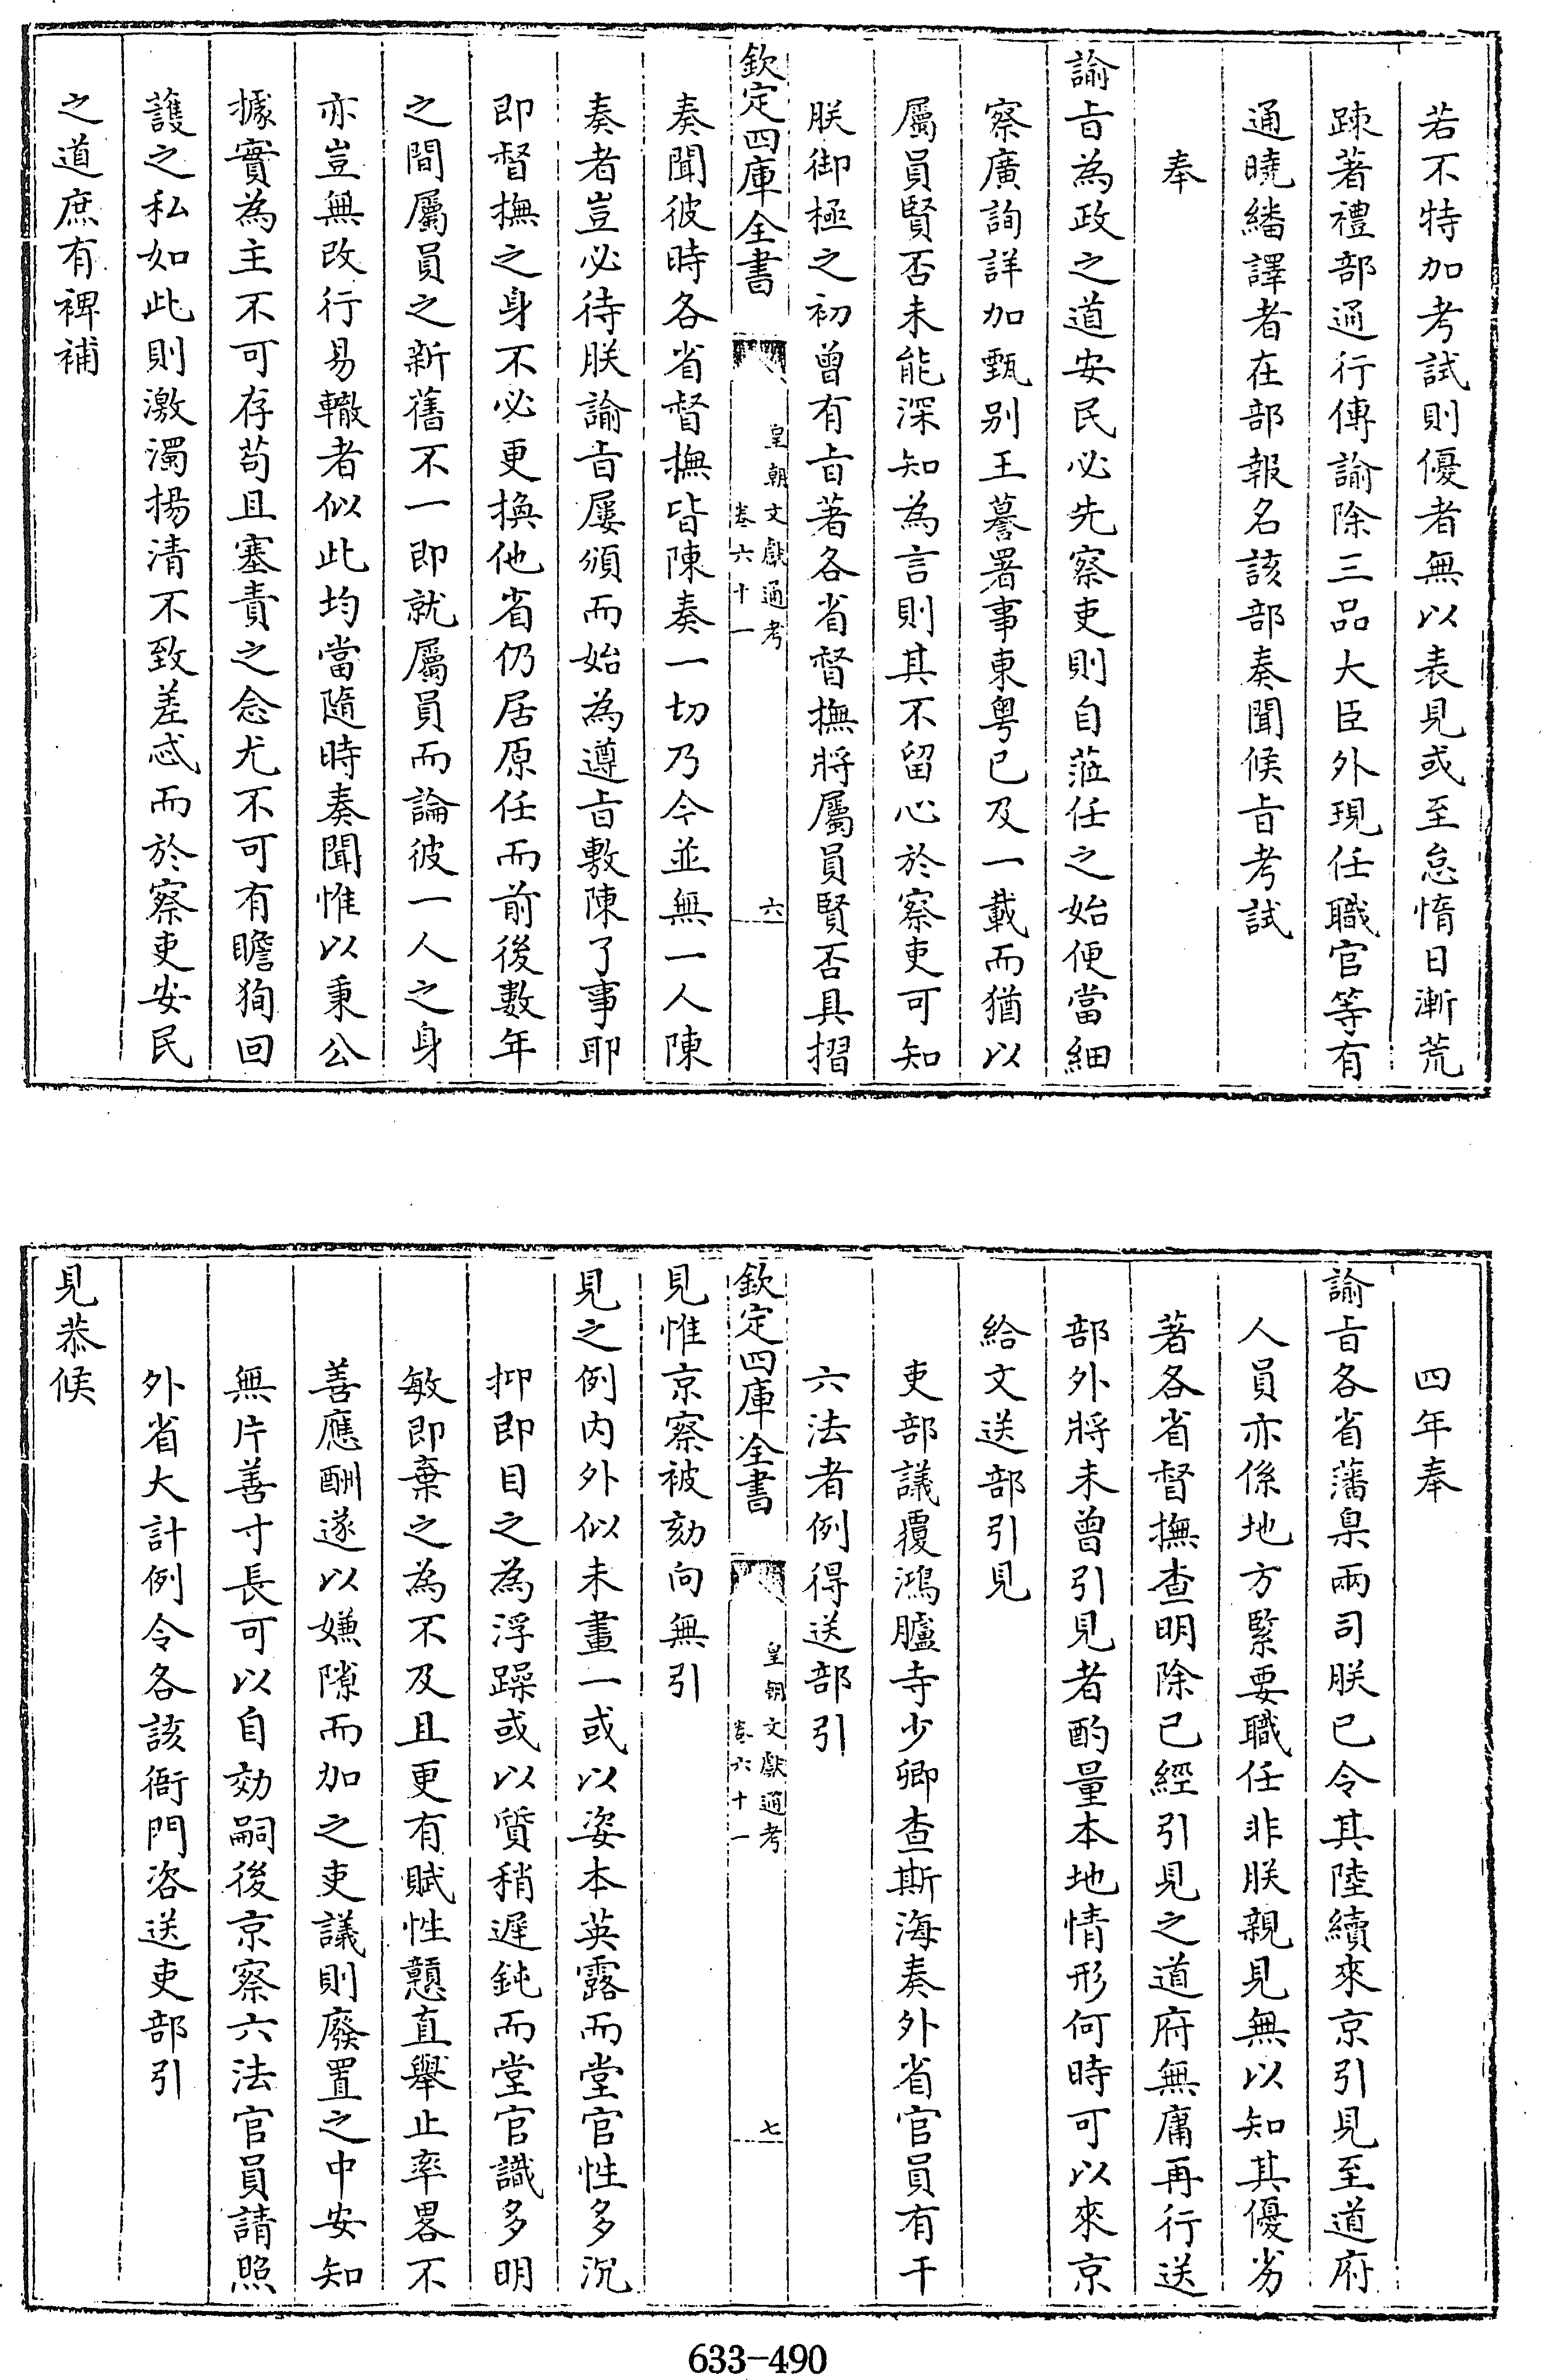 若不特加考試則優者無以表見或至怠惰日漸荒
疎著禮部通行傳諭除三品大臣外現任職官等有
通曉繙譯者在部報名該部奏聞候㫖考試
奉
諭㫖為政之道安民必先察吏則自蒞任之始便當細
察廣詢詳加甄别王謩署事東粤已及一載而猶以
屬員賢否未能深知為言則其不留心於察吏可知
朕御極之初曾有㫖著各省督撫將屬員賢否具摺
欽定四庫全書
皇朝文獻通考
卷六十一
六
奏聞彼時各省督撫皆陳奏一切乃今並無一人陳
奏者豈必待朕諭㫖屢頒而始為遵㫖敷陳了事耶
即督撫之身不必更換他省仍居原任而前後數年
之間屬員之新舊不一即就屬員而論彼一人之身
亦豈無改行易轍者似此均當隨時奏聞惟以秉公
據實為主不可存苟且塞責之念尤不可有瞻狥回
護之私如此則激濁揚清不致差忒而於察吏安民
之道庶有裨補
四年奉
諭㫖各省藩臬兩司朕已令其陸續來京引見至道府
人員亦係地方緊要職任非朕親見無以知其優劣
著各省督撫查明除已經引見之道府無庸再行送
部外將未曾引見者酌量本地情形何時可以來京
給文送部引見
吏部議覆鴻臚寺少卿查斯海奏外省官員有干
六法者例得送部引
欽定四庫全書
皇朝文獻通考
卷六十一
七
見惟京察被劾向無引
見之例内外似未畫一或以姿本英露而堂官性多沉
抑即目之為浮躁或以質稍遲鈍而堂官識多明
敏即棄之為不及且更有賦性戇直舉止率畧不
善應酬遂以嫌隙而加之吏議則廢置之中安知
無片善寸長可以自効嗣後京察六法官員請照
外省大計例令各該衙門咨送吏部引
見恭候
633-490